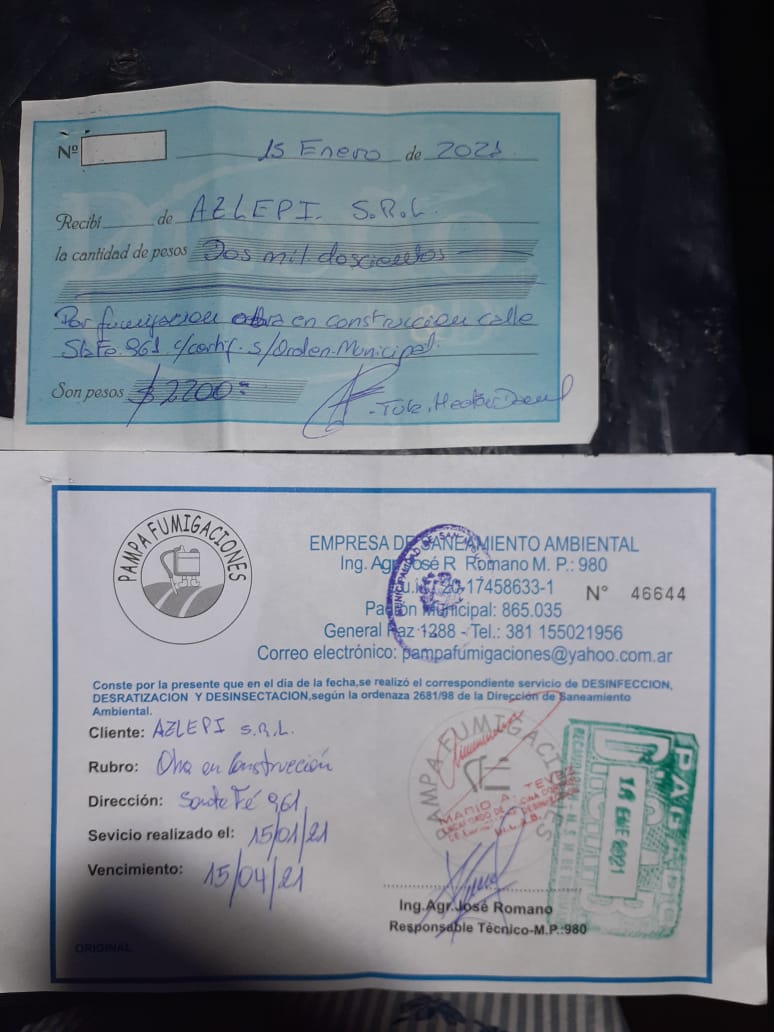 Nº
15 Enero de 2021
Recibí de AZLEPI. S.R.L.
la cantidad de pesos Dos mil doscientos
Por fumigacion obra en construccion calle
Sta Fe. 961 c/certif. s/Orden Municipal.
Son pesos $2200=
PAMPA FUMIGACIONES
EMPRESA DE SANEAMIENTO AMBIENTAL
Ing. Agr. José R Romano M. P.: 980
20-17458633-1
Nº 46644
Padrón Municipal: 865.035
General Paz 1288 - Tel.: 381 155021956
Correo electrónico: pampafumigaciones@yahoo.com.ar
MUNICIPALIDAD DE SAN
Conste por la presente que en el día de la fecha,se realizó el correspondiente servicio de DESINFECCION,
DESRATIZACION Y DESINSECTACION,según la ordenaza 2681/98 de la Dirección de Saneamiento
Ambiental.
Cliente: AZLEPI S.R.L.
Rubro: Obra en Construcción
Dirección: Santa Fé 961
Sevicio realizado el: 15/01/21
Vencimiento: 15/04/21
PAMPA FUMIGACIONES
MARIO A.
PAGADO
ENE 2021
Ing.Agr.José Romano
Responsable Técnico-M.P.:980
ORIGINAL